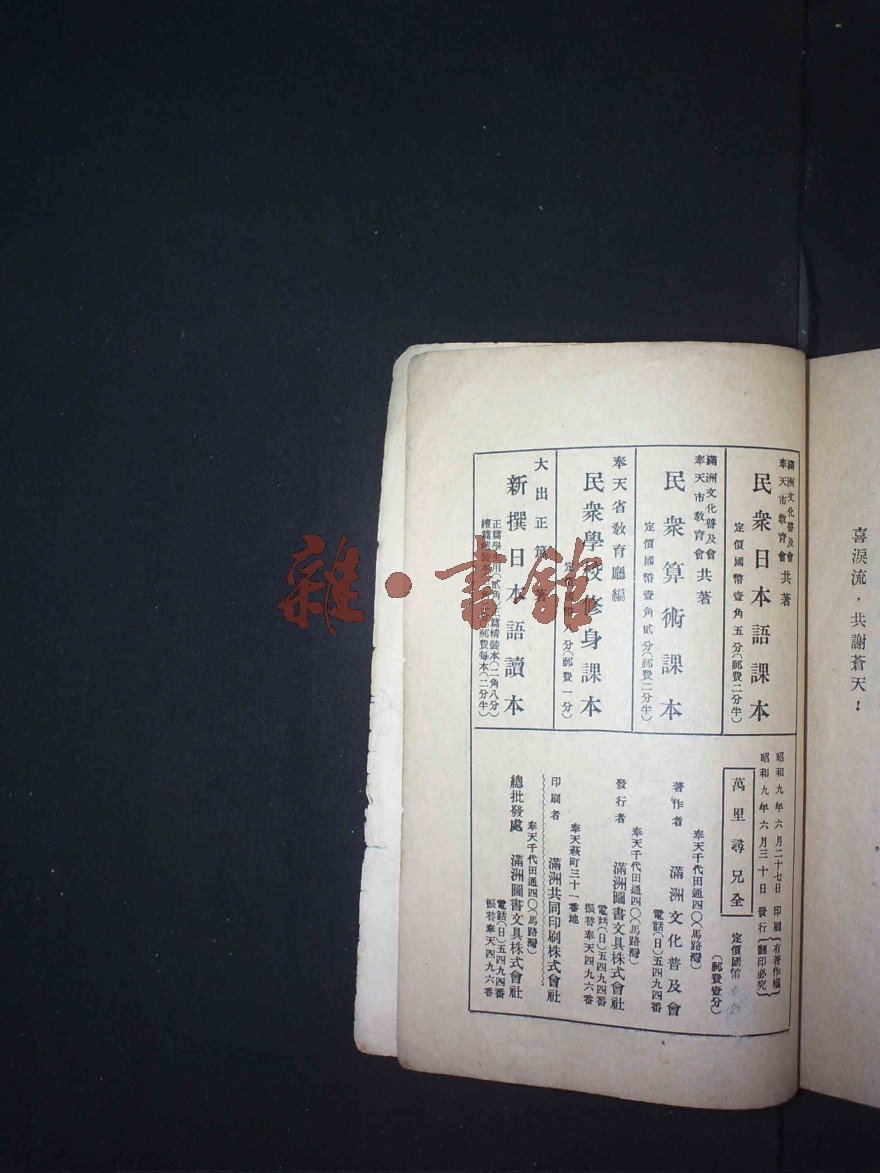 喜淚流，共謝蒼天！
滿洲文化普及會
奉天市敎育會
共著
民衆日本語課本
定價國幣壹角五分（郵費二分半）
滿洲文化普及會
奉天市敎育會
共著
民衆算術課本
定價國幣壹角貳分（郵費二分半）
奉天省敎育廳編
民衆學校修身課本
分（郵費一分）
大出正篤
新撰日本語讀本
正篇學生用（貳角）正篇精裝本（二角八分）
郵費每本（二分半）
昭和九年六月二十七日 印刷
昭和九年六月三十日 發行
有著作權
翻印必究
萬里尋兄全
定價國幣
（郵費壹分）
奉天千代田通四〇（馬路灣）
著作者 滿洲文化普及會
電話（日）五四九四番
奉天千代田通四〇（馬路灣）
發行者 滿洲圖書文具株式會社
電話（日）五四九四番
振替奉天四四九六番
奉天萩町三十一番地
印刷者 滿洲共同印刷株式會社
奉天千代田通四〇（馬路灣）
總批發處 滿洲圖書文具株式會社
電話（日）五四九四番
振替奉天四四九六番
雜·書館